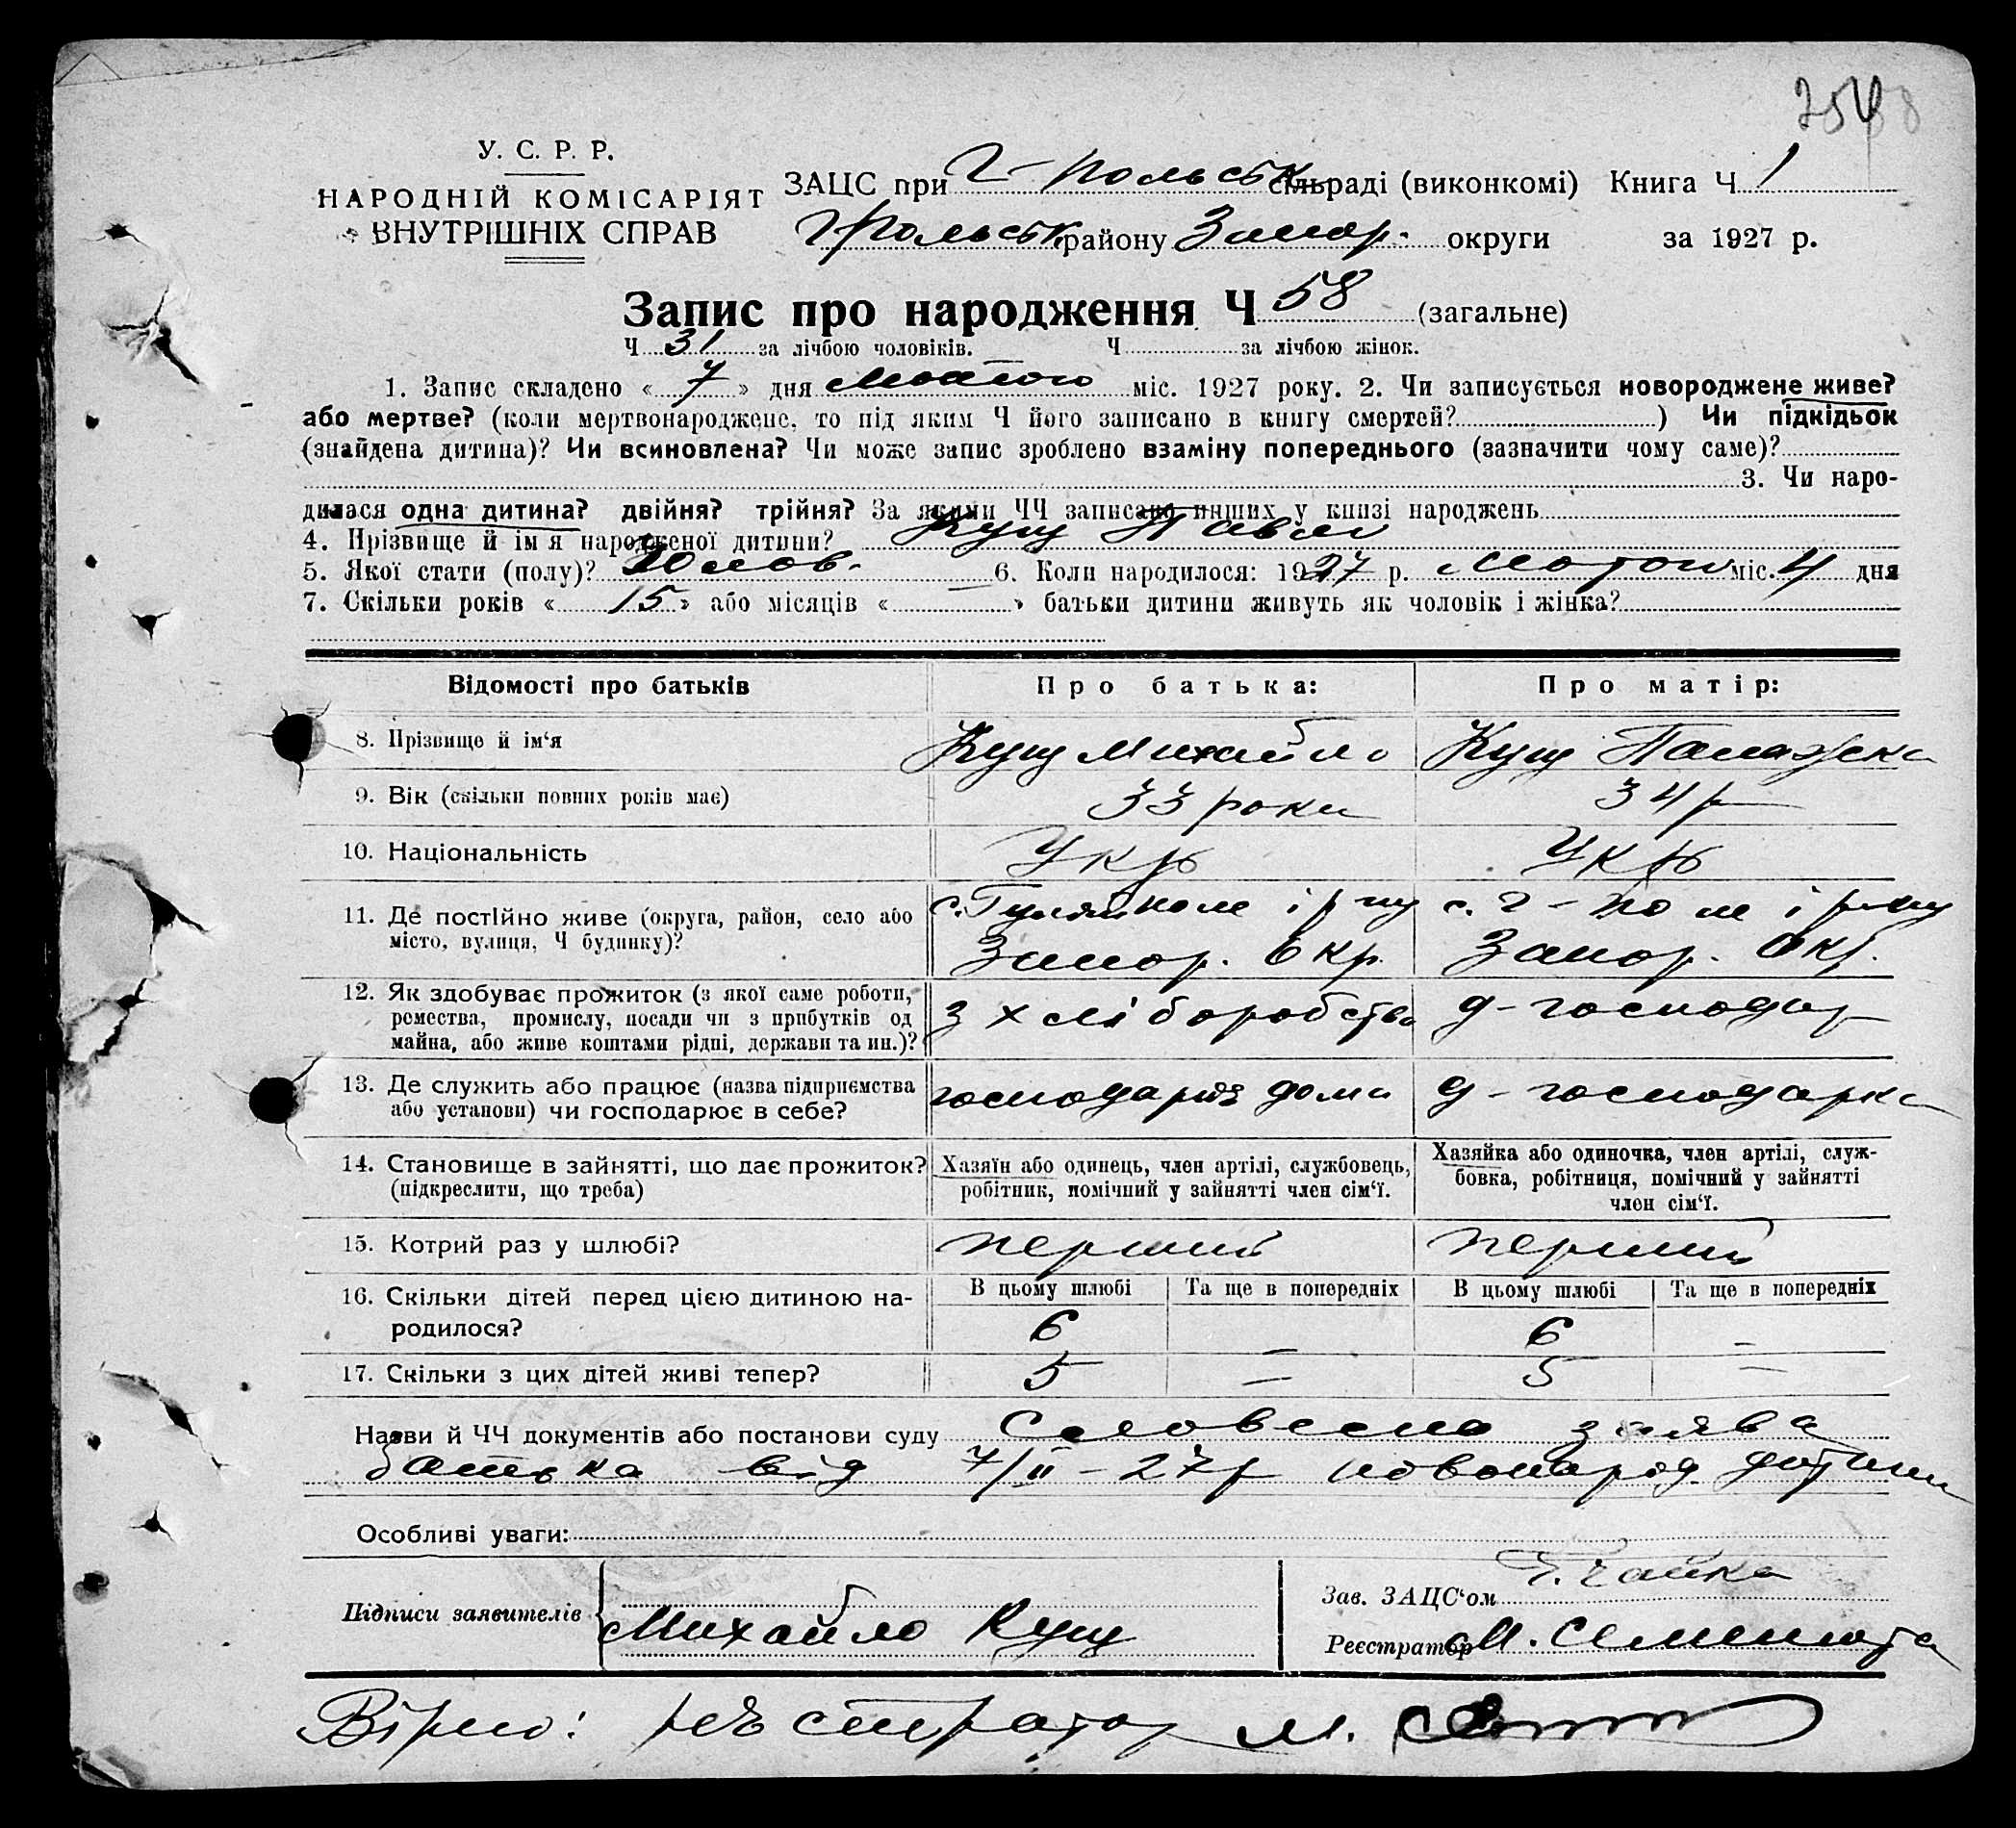 У. С. Р. Р.
НАРОДНІЙ КОМІСАРІЯТ
ВНУТРІШНІХ СПРАВ
ЗАЦС при Г-Польськ сільраді (виконкомі) Книга Ч 1
Г Польськ району Запор. округи за 1927 р.
Запис про народження Ч 58 (загальне)
Ч 31 за лічбою чоловіків. Ч за лічбою жінок.
1. Запис складено « 7 » дня Лютого міс. 1927 року. 2. Чи записується новороджене живе?
або мертве? (коли мертвонароджене, то під яким Ч його записано в книгу смертей? ) Чи підкідьок
(знайдена дитина)? Чи всиновлена? Чи може запис зроблено взаміну попереднього (зазначити чому саме)?
3. Чи наро-
дилася одна дитина? двійня? трійня? За якими ЧЧ записано инших у книзі народжень
4. Прізвище й ім я народженої дитини? Кущ Павло
5. Якої стати (полу)? Чолов. 6. Коли народилося: 1927 р. Лютого міс. 4 дня
7. Скільки років « 15 » або місяців « » батьки дитини живуть як чоловік і жінка?
Відомості про батьків Про батька: Про матір:
8. Прізвище й ім‘я Кущ Михайло Кущ Палажка
9. Вік (скільки повних років має) 33 роки 34 р
10. Національність Укр Укр
11. Де постійно живе (округа, район, село або с. Гуляйполе і р ну с. Г-Поле і р-ну
місто, вулиця, Ч будинку)? Запор. Окр. Запор. Окр.
12. Як здобуває прожиток (з якої саме роботи,
ремества, промислу, посади чи з прибутків од з хліборобства д-господар
майна, або живе коштами рідні, держави та ин.)?
13. Де служить або працює (назва підприємства господарює дома д-господарка
або установи) чи господарює в себе?
14. Становище в зайнятті, що дає прожиток? Хазяїн або одинець, член артілі, службовець, Хазяйка або одиночка, член артілі, служ-
(підкреслити, що треба) робітник, помічний у зайнятті член сім‘ї. бовка, робітниця, помічний у зайнятті
член сім‘ї.
15. Котрий раз у шлюбі? перший перший
16. Скільки дітей перед цією дитиною на- В цьому шлюбі Та ще в попередніх В цьому шлюбі Та ще в попередніх
родилося? 6 – 6 –
17. Скільки з цих дітей живі тепер? 5 – 5 –
Назви й ЧЧ документів або постанови суду Словесна заява
батька від 7/II-27р новонарод дитини
Особливі уваги:
Зав. ЗАЦС‘ом Чайка
Підписи заявителів Михайло Кущ
Реєстратор М. Семенюта
Вірно: реєстратор М.